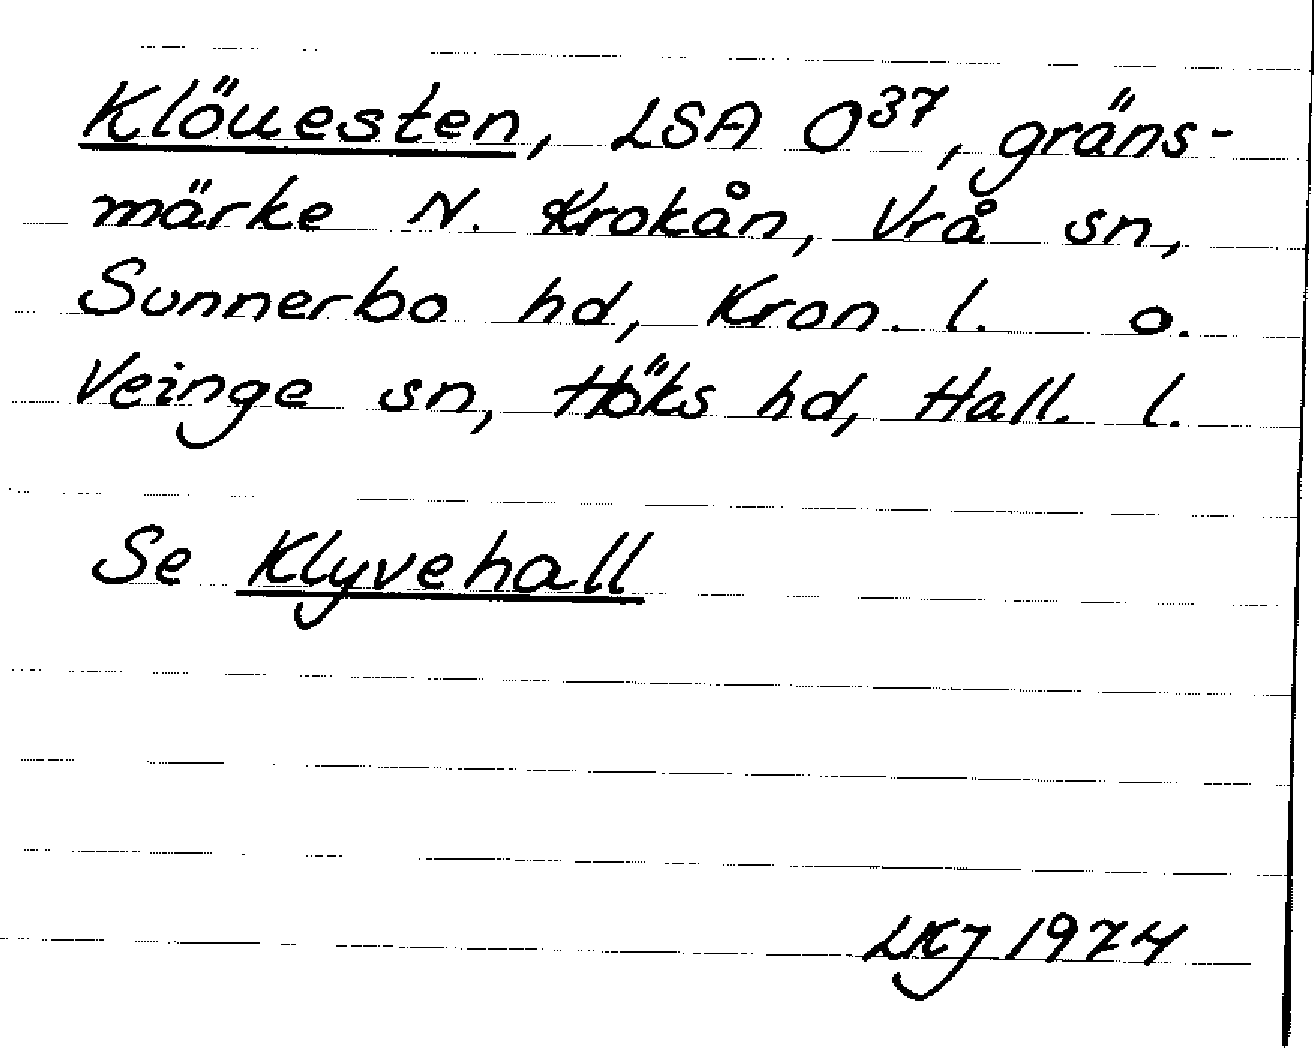 Klöuesten, LSA O37, gräns-
märke N. Krokån, Vrå sn,
Sunnerbo hd, Kron. l. o.
Veinge sn, Höks hd, Hall. l.
Se Klyvehall
LKJ 1974